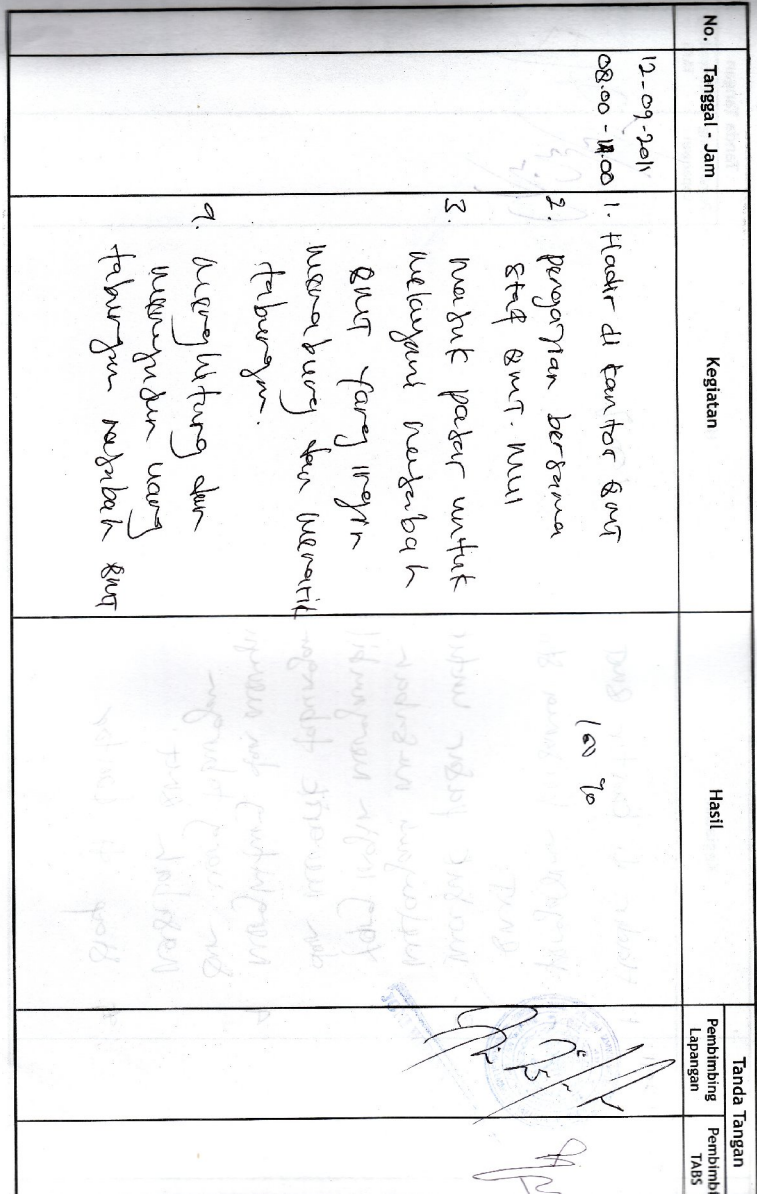 No.
Tanggal - Jam
Kegiatan
Hasil
Tanda Tangan
Pembimbing
Lapangan
Pembimbi
TABS
12-09-2011
08.00 - 14.00
1. Hadir di kantor BMT
2. pengajian bersama
staf BMT. MUI
3. masuk pasar untuk
melayani nasabah
BMT yang ingin
menabung dan menarik
tabungan.
4. menghitung dan
menyusun uang
tabungan nasabah BMT
100 %